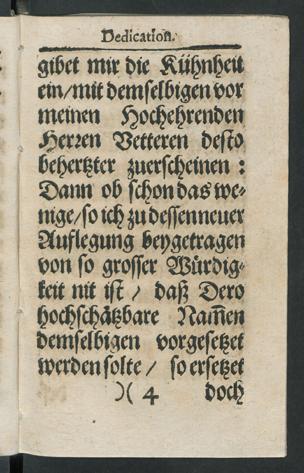 Dedication.
gibet mir die Kühnheit
ein/mit demselbigen vor
meinen Hochehrenden
Herren Vetteren desto
behertzter zuerscheinen :
Dann ob schon das we-
nige/so ich zu dessen neuer
Aufflegung beygetragen
von so grosser Würdig-
keit nit ist / daß Dero
hochschätzbare Nam̃en
demselbigen vorgesetzet
werden solte / so ersetzet
)( 4 doch